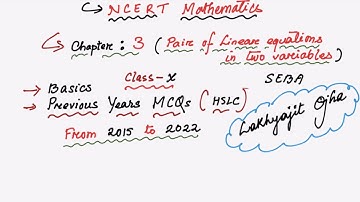 ↳ NCERT Mathematics
↳ Chapter : 3 ( Pair of Linear equations
in two variables )
Class-X
SEBA
→ Basics
→ Previous Years MCQs ( HSLC )
From 2015 to 2022
Lakhyajit Ojha